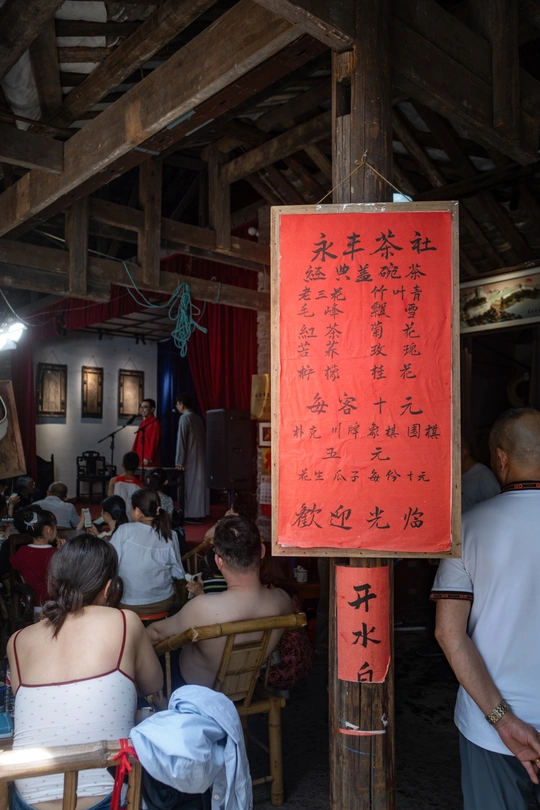 永丰茶社
經典蓋碗茶
老三花 竹叶青
毛峰 飄雪
紅茶 菊花
苦荞 玫瑰
柠檬 桂花
每客十元
扑克 川牌 象棋 围棋
五元
花生 瓜子 每份十元
歡迎光临
开水自